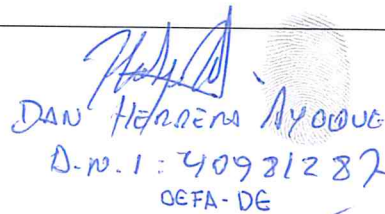 DAN HERRERA AYQQUE
D.N.I: 40981287
OEFA-DE